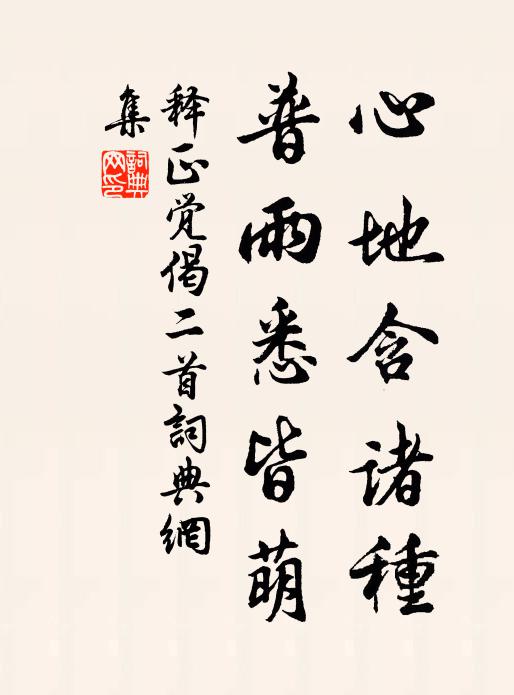 心地含诸種
普雨悉皆萌
释正觉偈二首詞典網
集
詞典網印